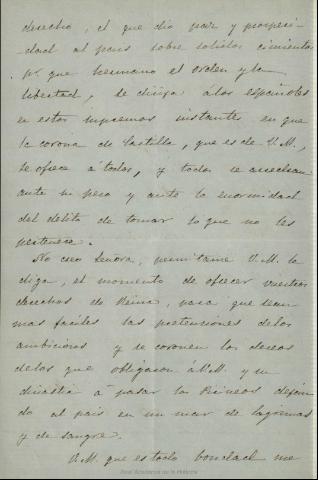 derecho, el que dio paz y prosperi-
dad al pais sobre solidos cimientos
pr. que hermano el orden y la
libertad, se dirija a los españoles
en estos supremos instantes en que
la corona de Castilla, que es de V.M.,
se ofrece a todos, y todos se
ante su peso y ante la enormidad
del delito de tomar lo que no les
pertenece.
No creo Señora, permitame V.M. la
diga, el momento de ofrecer vuestros
derechos de Reina, para que sean
mas faciles las pretensiones de los
ambiciosos y se coronen los deseos
de los que obligaron á V.M. y su
dinastia á pasar los Pirineos dejan
do al pais en un mar de lagrimas
y de sangre.
V.M. que es todo bondad me
Real Academia de la Historia